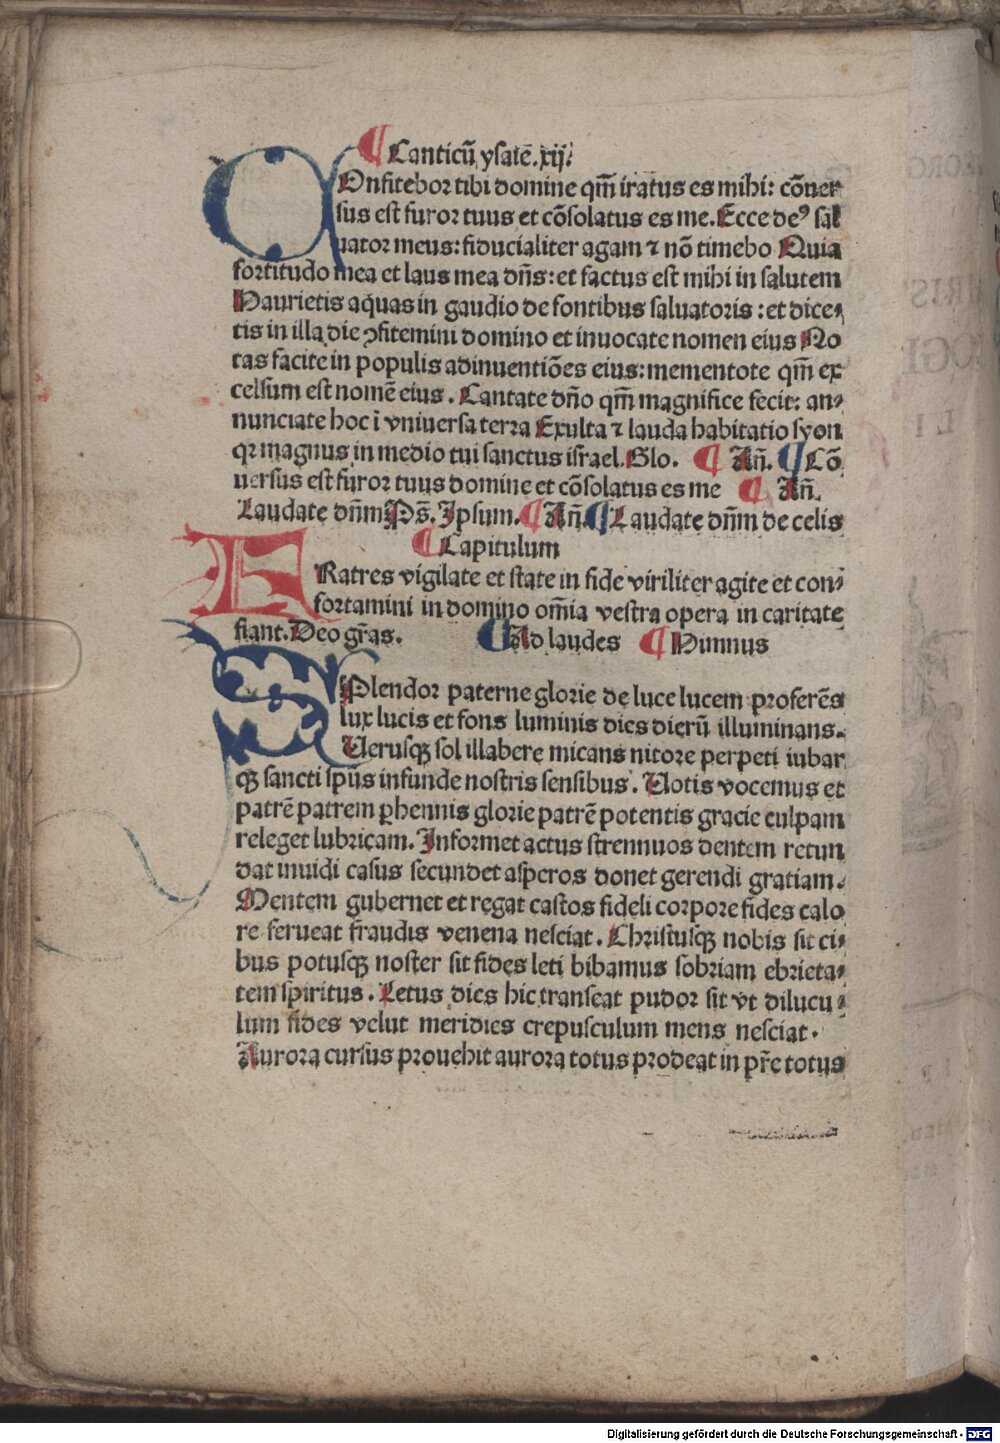 ¶ Canticū ysaie. xij.
COnfitebor tibi domine qm̄ iratus es mihi: cōuer
sus est furor tuus et cōsolatus es me. Ecce deꝰ sal
uator meus: fiducialiter agam ⁊ nō timebo Quia
fortitudo mea et laus mea dn̄s: et factus est mihi in salutem
Haurietis aquas in gaudio de fontibus saluatoris : et dice⸗
tis in illa die ꝯfitemini domino et inuocate nomen eius No
tas facite in populis adinuentiōes eius: mementote qm̄ ex
celsum est nomē eius. Cantate dn̄o qm̄ magnifice fecit: an⸗
nunciate hoc ī vniuersa terra Exulta ⁊ lauda habitatio syon
qꝛ magnus in medio tui sanctus israel. Glo. ¶ An̄. ¶ Cō
uersus est furor tuus domine et cōsolatus es me ¶ An̄.
Laudate dn̄m Ps̄. Ipsum. ¶ An̄. ¶ Laudate dn̄m de celis
¶ Capitulum
FRatres vigilate et state in fide viriliter agite et con⸗
fortamini in domino om̄ia vestra opera in caritate
fiant. Deo gr̄as. ¶ Ad laudes ¶ Himnus
SPlendor paterne glorie de luce lucem proferēs
lux lucis et fons luminis dies dierū illuminans.
Uerusqꝫ sol illabere micans nitore perpeti iubar
qꝫ sancti sp̄us infunde nostris sensibus. Uotis vocemus et
patrē patrem ꝑhennis glorie patrē potentis gracie culpam
releget lubricam. Informet actus strennuos dentem retun
dat inuidi casus secundet asperos donet gerendi gratiam.
Mentem gubernet et regat castos fideli corpore fides calo
re ferueat fraudis venena nesciat. Christusqꝫ nobis sit ci⸗
bus potusqꝫ noster sit fides leti bibamus sobriam ebrieta⸗
tem spiritus. Letus dies hic transeat pudor sit vt dilucu⸗
lum fides velut meridies crepusculum mens nesciat.
Aurora cursus prouehit aurora totus prodeat in pr̄e totus
Digitalisierung gefördert durch die Deutsche Forschungsgemeinschaft - DFG